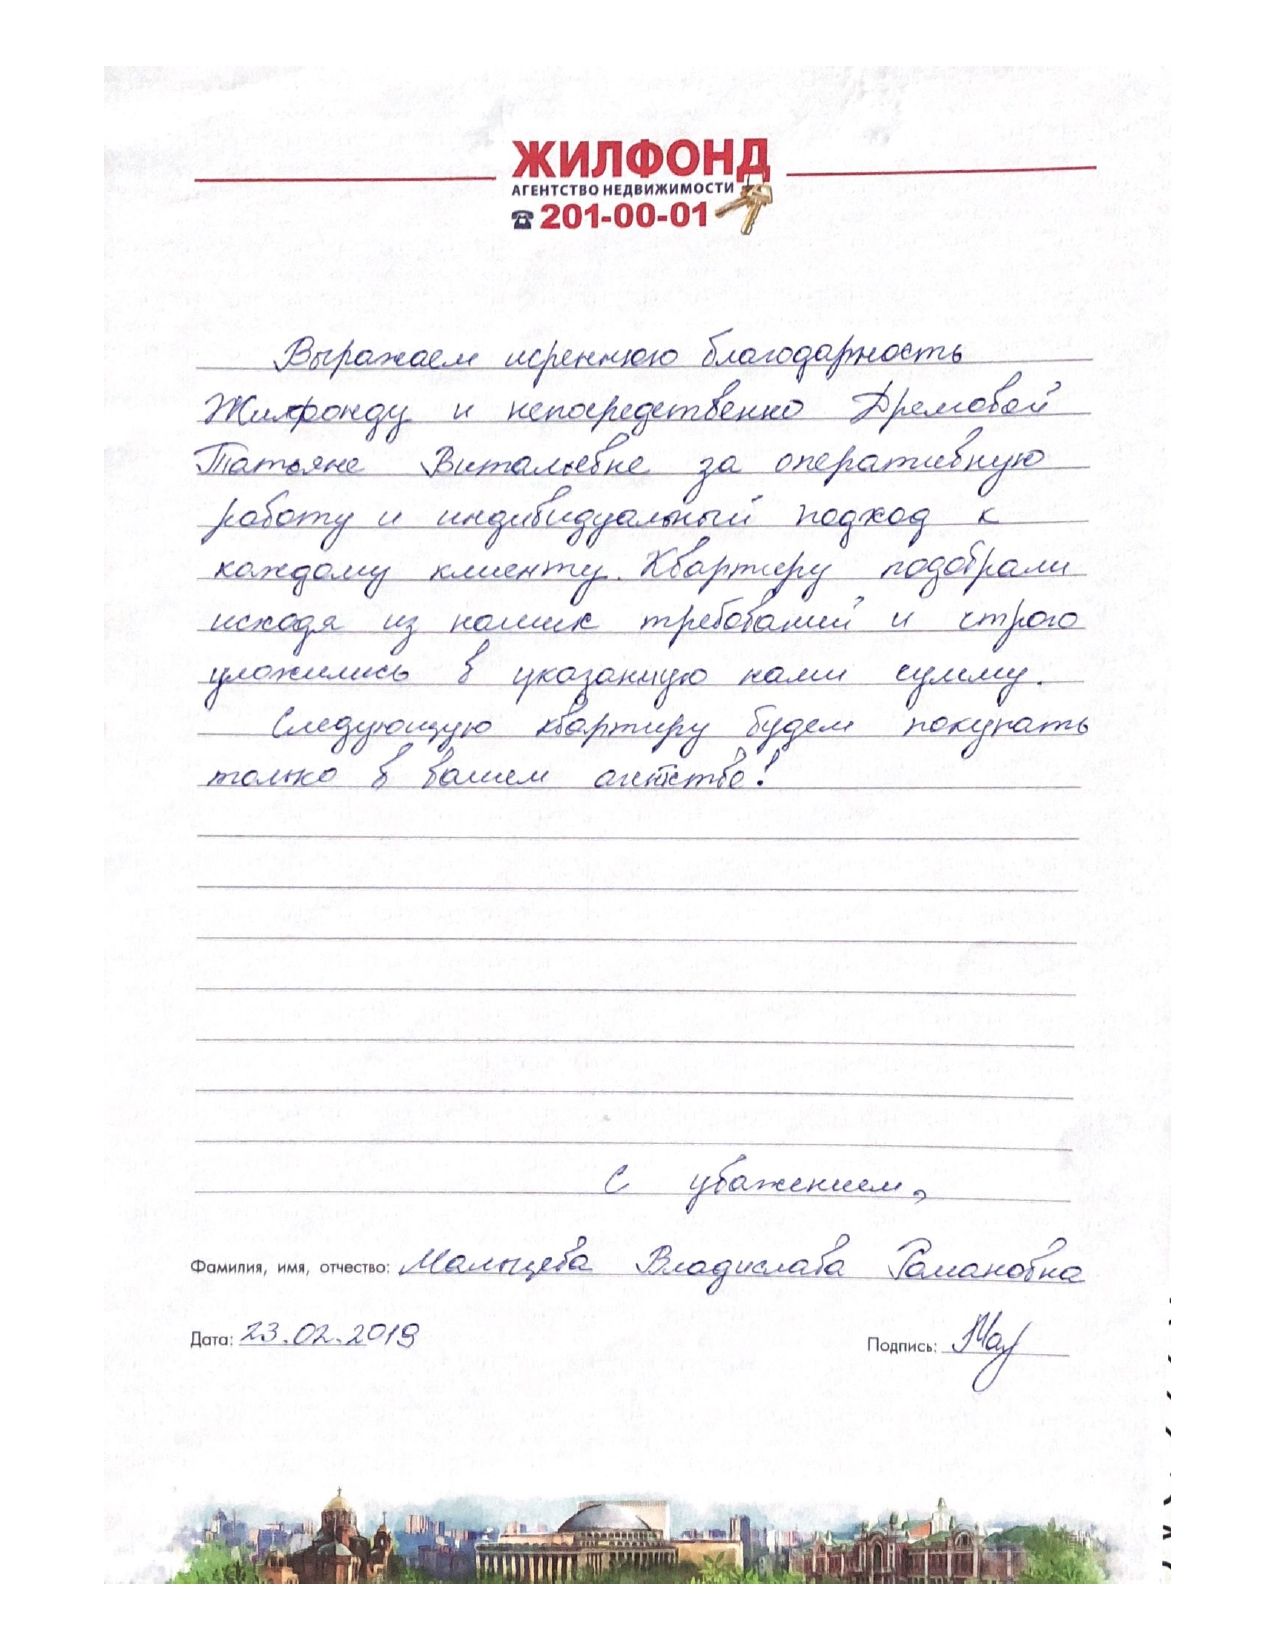 ЖИЛФОНД
АГЕНТСТВО НЕДВИЖИМОСТИ
201-00-01
Выражаем исреннюю благодарность
Жилфонду и непосредственно Дремовой
Татьяне Витальевне за оперативную
работу и индивидуальный подход к
каждому клиенту. Квартиру подобрали
исходя из наших требований и строго
уложились в указанную нами сумму.
Следующую квартиру будем покупать
только в вашем агентстве!
С уважением,
Фамилия, имя, отчество: Мальцева Владислава Романовна
Дата: 23.02.2019
Подпись: